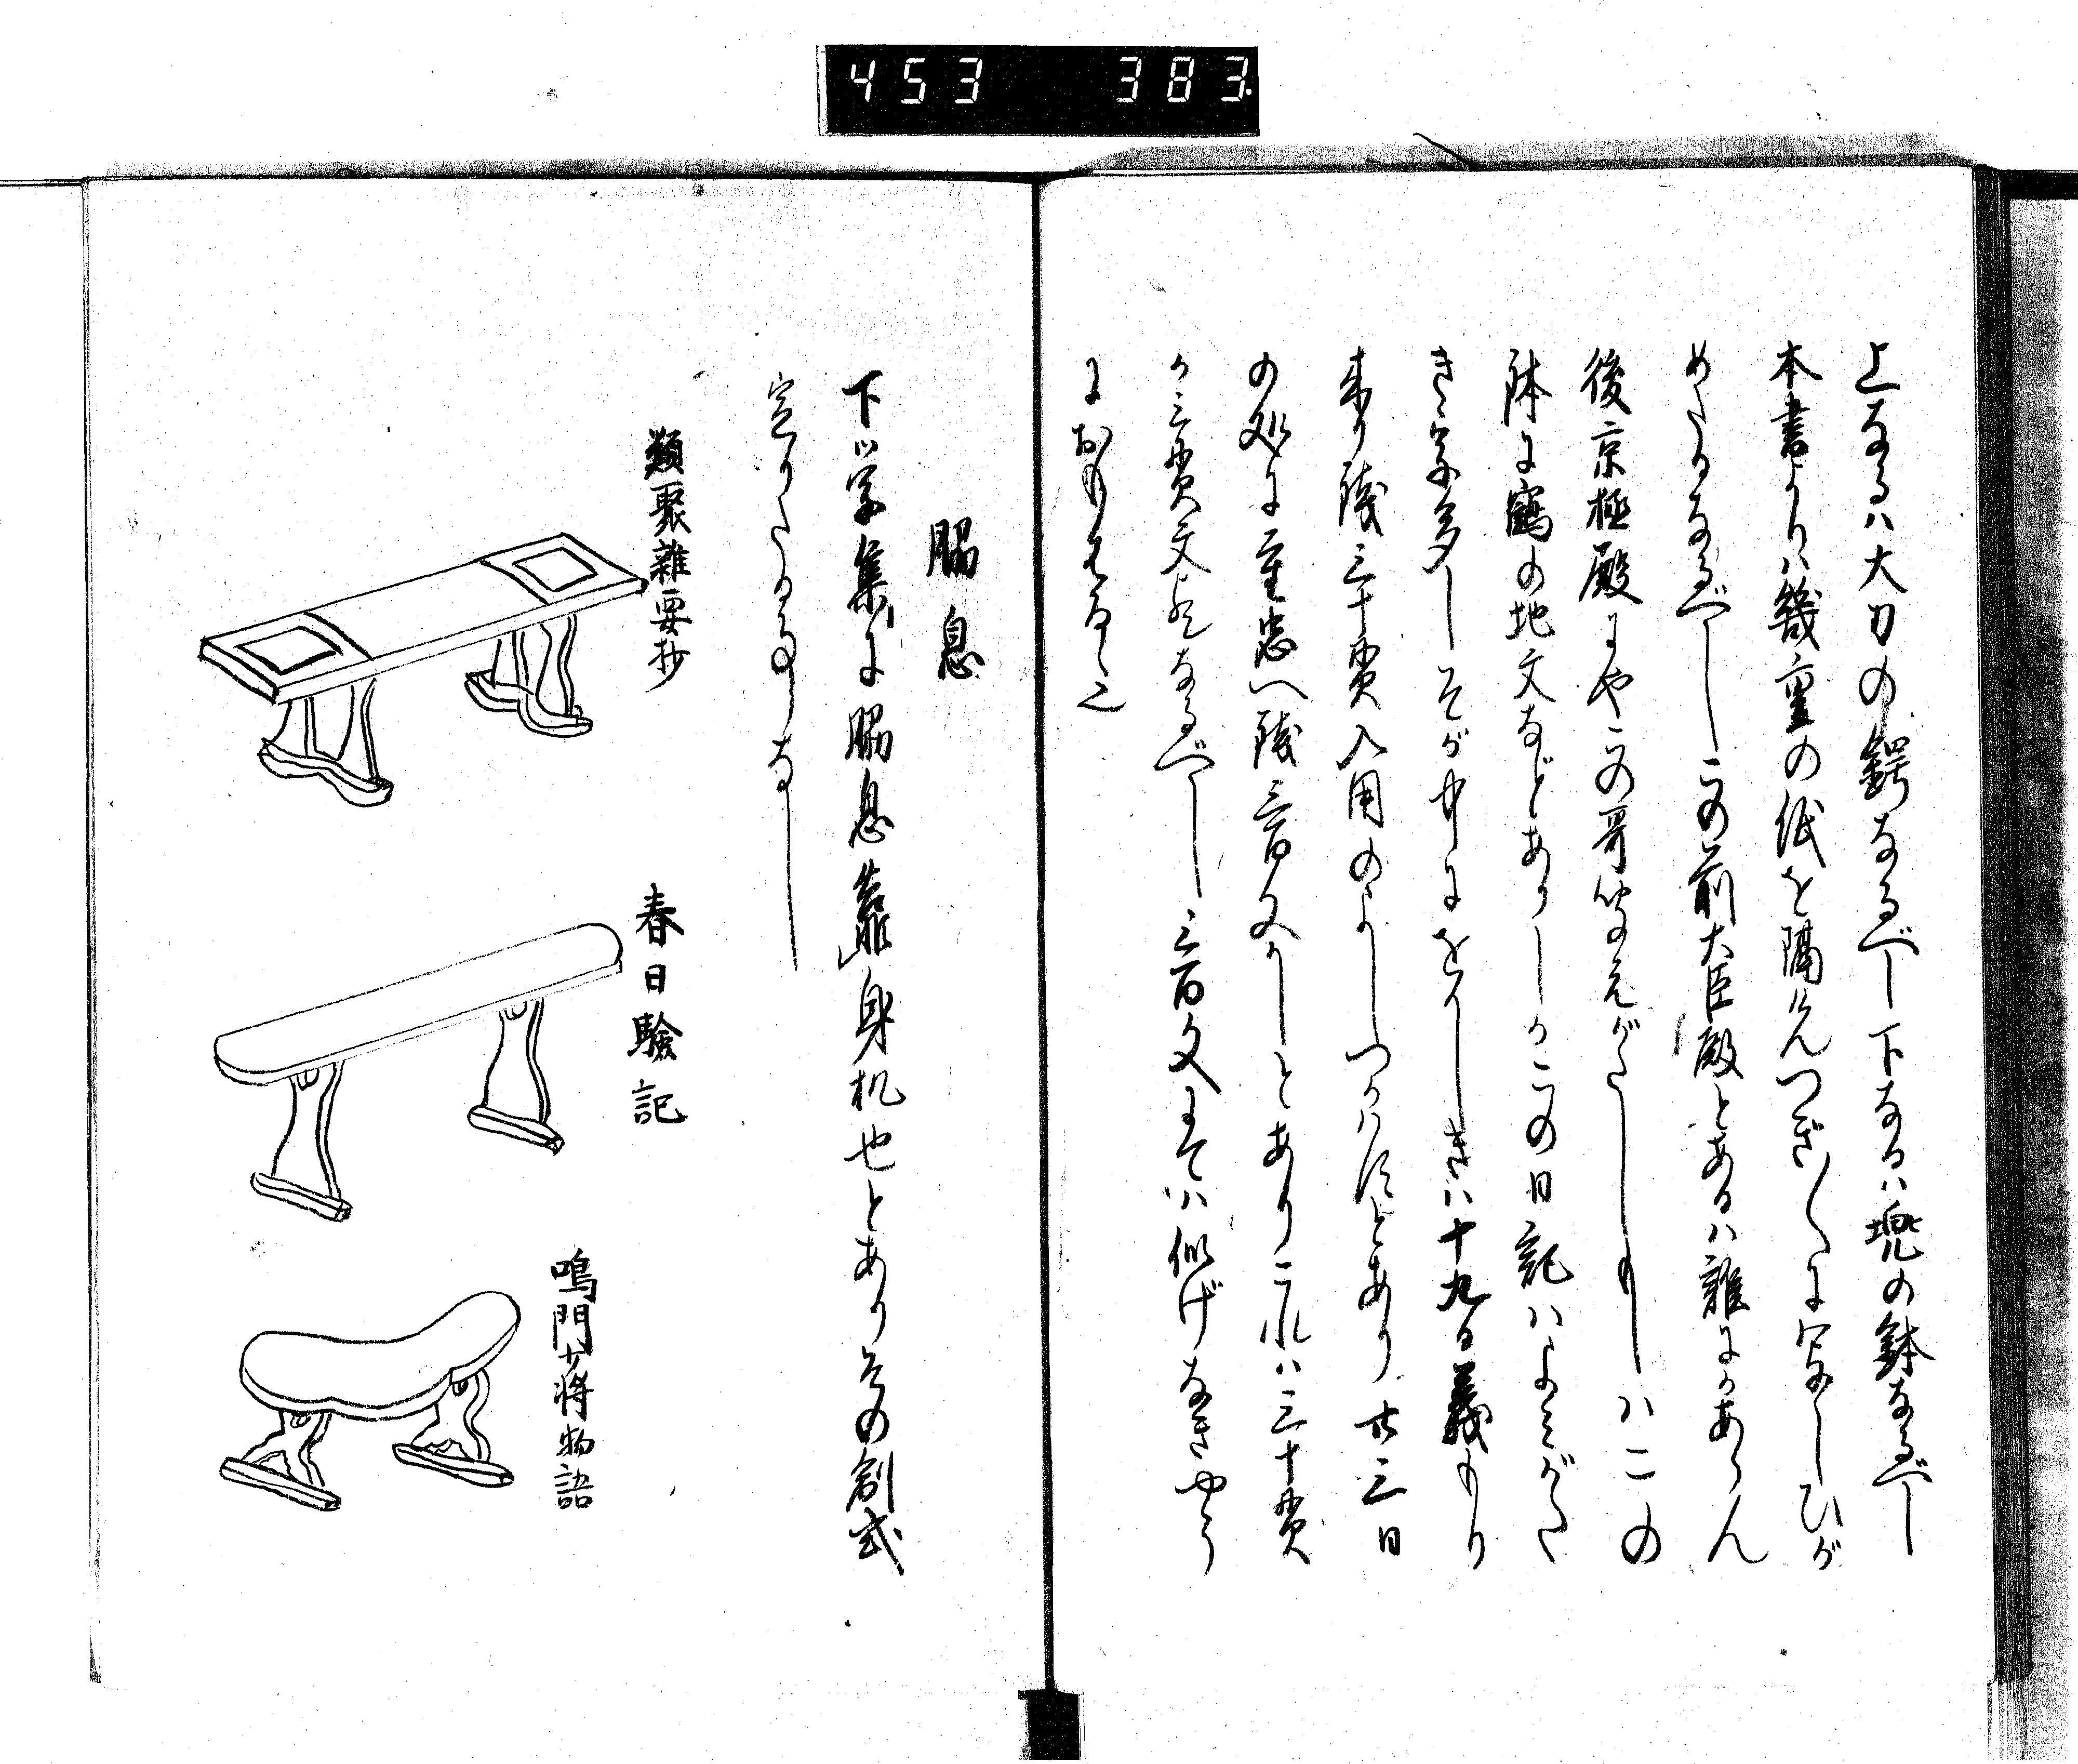 453 383.
上なるハ大刀の鍔なるべし下なるハ兜の鉢なるべし
本書よりハ幾重の紙を隔けんつぎ〱に写しひが
めたるなるべしこの前大臣殿とあるハ誰にかあらん
後京極殿にやこの哥きこえがたしもしハこの
鉢に鶴の地文などありしかこの日記ハよミがた
き字多しそが中にをかしきハ十九日義より
来り残三十貫入用のよしつかハすとあり廿三日
の処に重忠へ残三百文かしとありこれハ三十貫
か三貫文なるべし三百文にてハ似げなきやう
におもはるゝ
脇息
下学集に脇息靠身机也とありその創式
定りたる事なし
類聚雑要抄
春日験記
鳴門少将物語